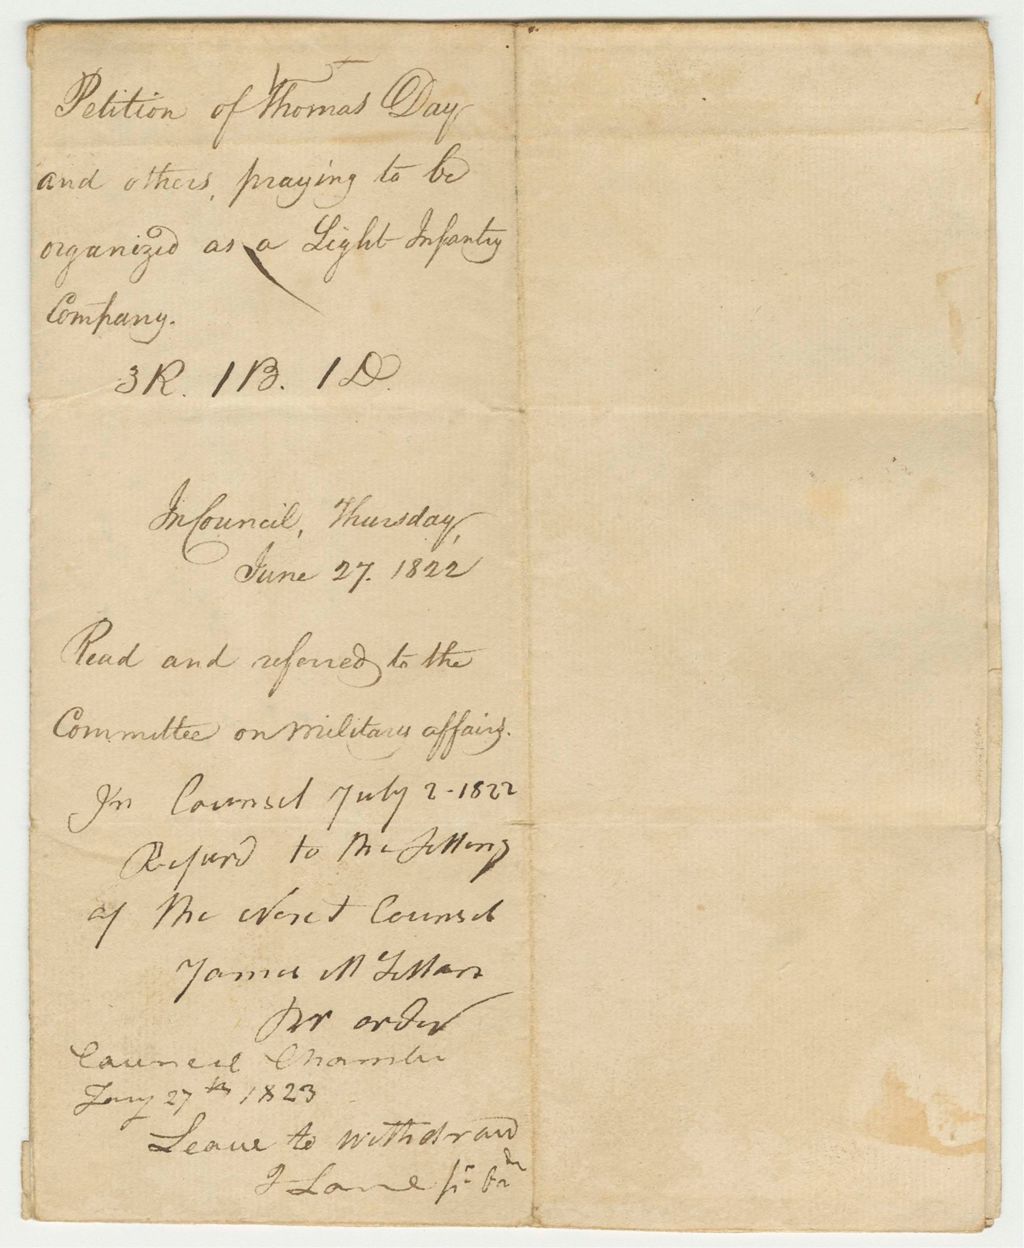 Petition of Thomas Day
and others, praying to be
organized as a Light Infantry
Company.
3R. 1B. 1D.
In Council, Thursday,
June 27. 1822
Read and referred to the
Committee on military affairs.
In Counsel July 2-1822
Refurd to the Setting
of the Next Counsel
James M
pr order
Council Chamber
Jany 27th 1823
Leave to withdraw
J Lane pr